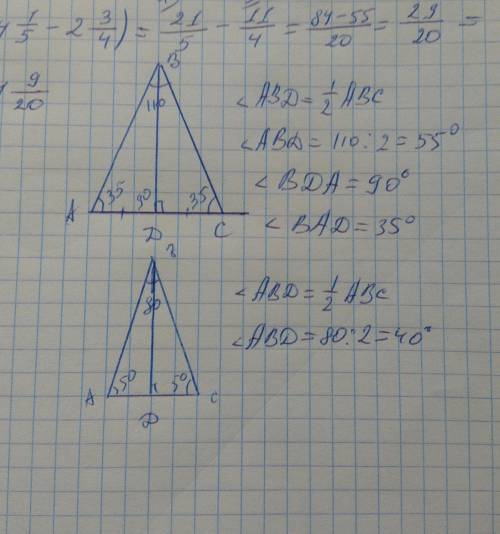 4 1/5 - 2 3/4) = 21/5 - 11/4 = 84-55/20 = 29/20 =
1 9/20
B
110
A 35 90 35 C
D
∠ABD = 1/2 ABC
∠ABD = 110 : 2 = 55°
∠BDA = 90°
∠BAD = 35°
B
80
A 50 50 C
D
∠ABD = 1/2 ABC
∠ABD = 80 : 2 = 40°